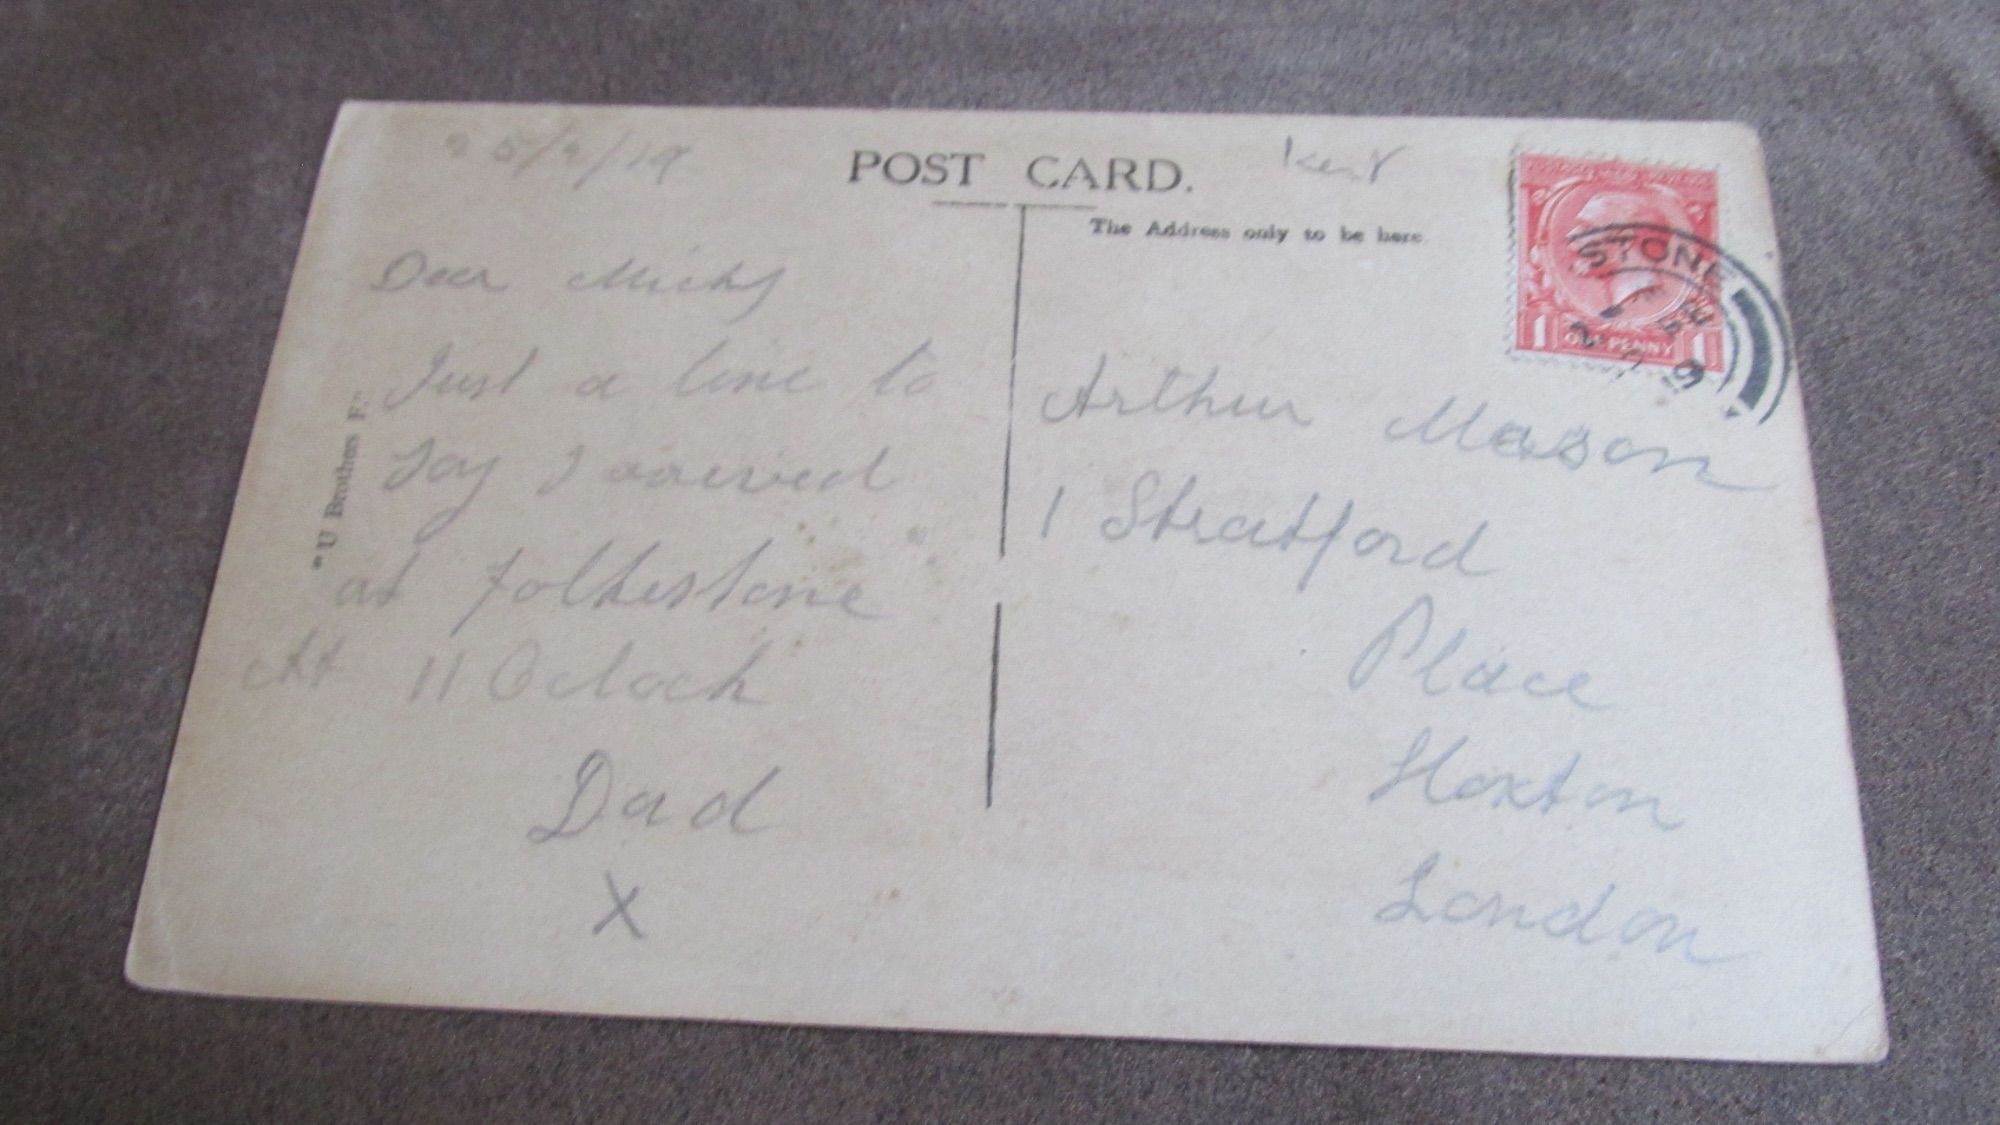 25/2/19
POST CARD.
Kent
The Address only to be here.
STONE
1 ONE PENNY 1
Dear Micky
Just a line to
say I arrived
at Folkestone
At 11 Oclock
Dad
X
Arthur Mason
1 Stratford
Place
Hoxton
London
"U Brothers F."